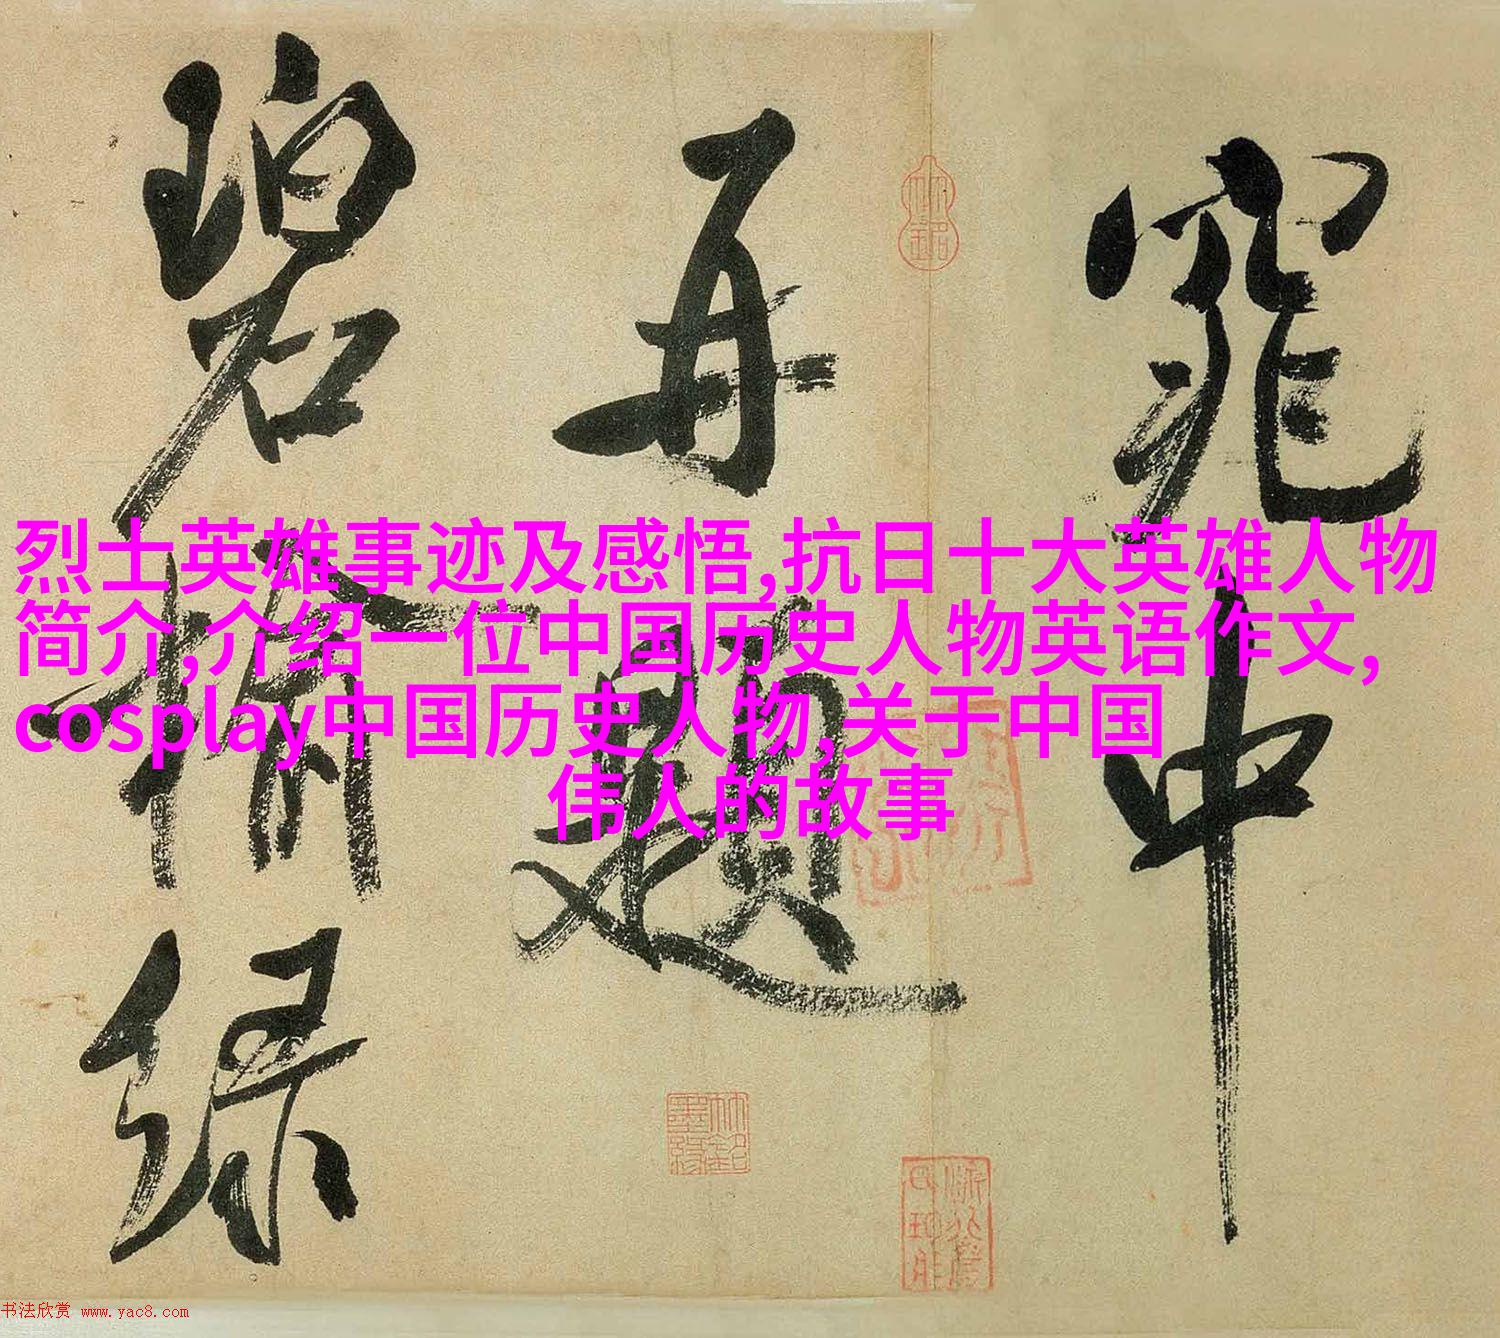 烈士英雄事迹及感悟,抗日十大英雄人物
简介,介绍一位中国历史人物英语作文,
cosplay中国历史人物,关于中国
伟人的故事
中
再題
碧 綠
书法欣赏 www.yac8.com